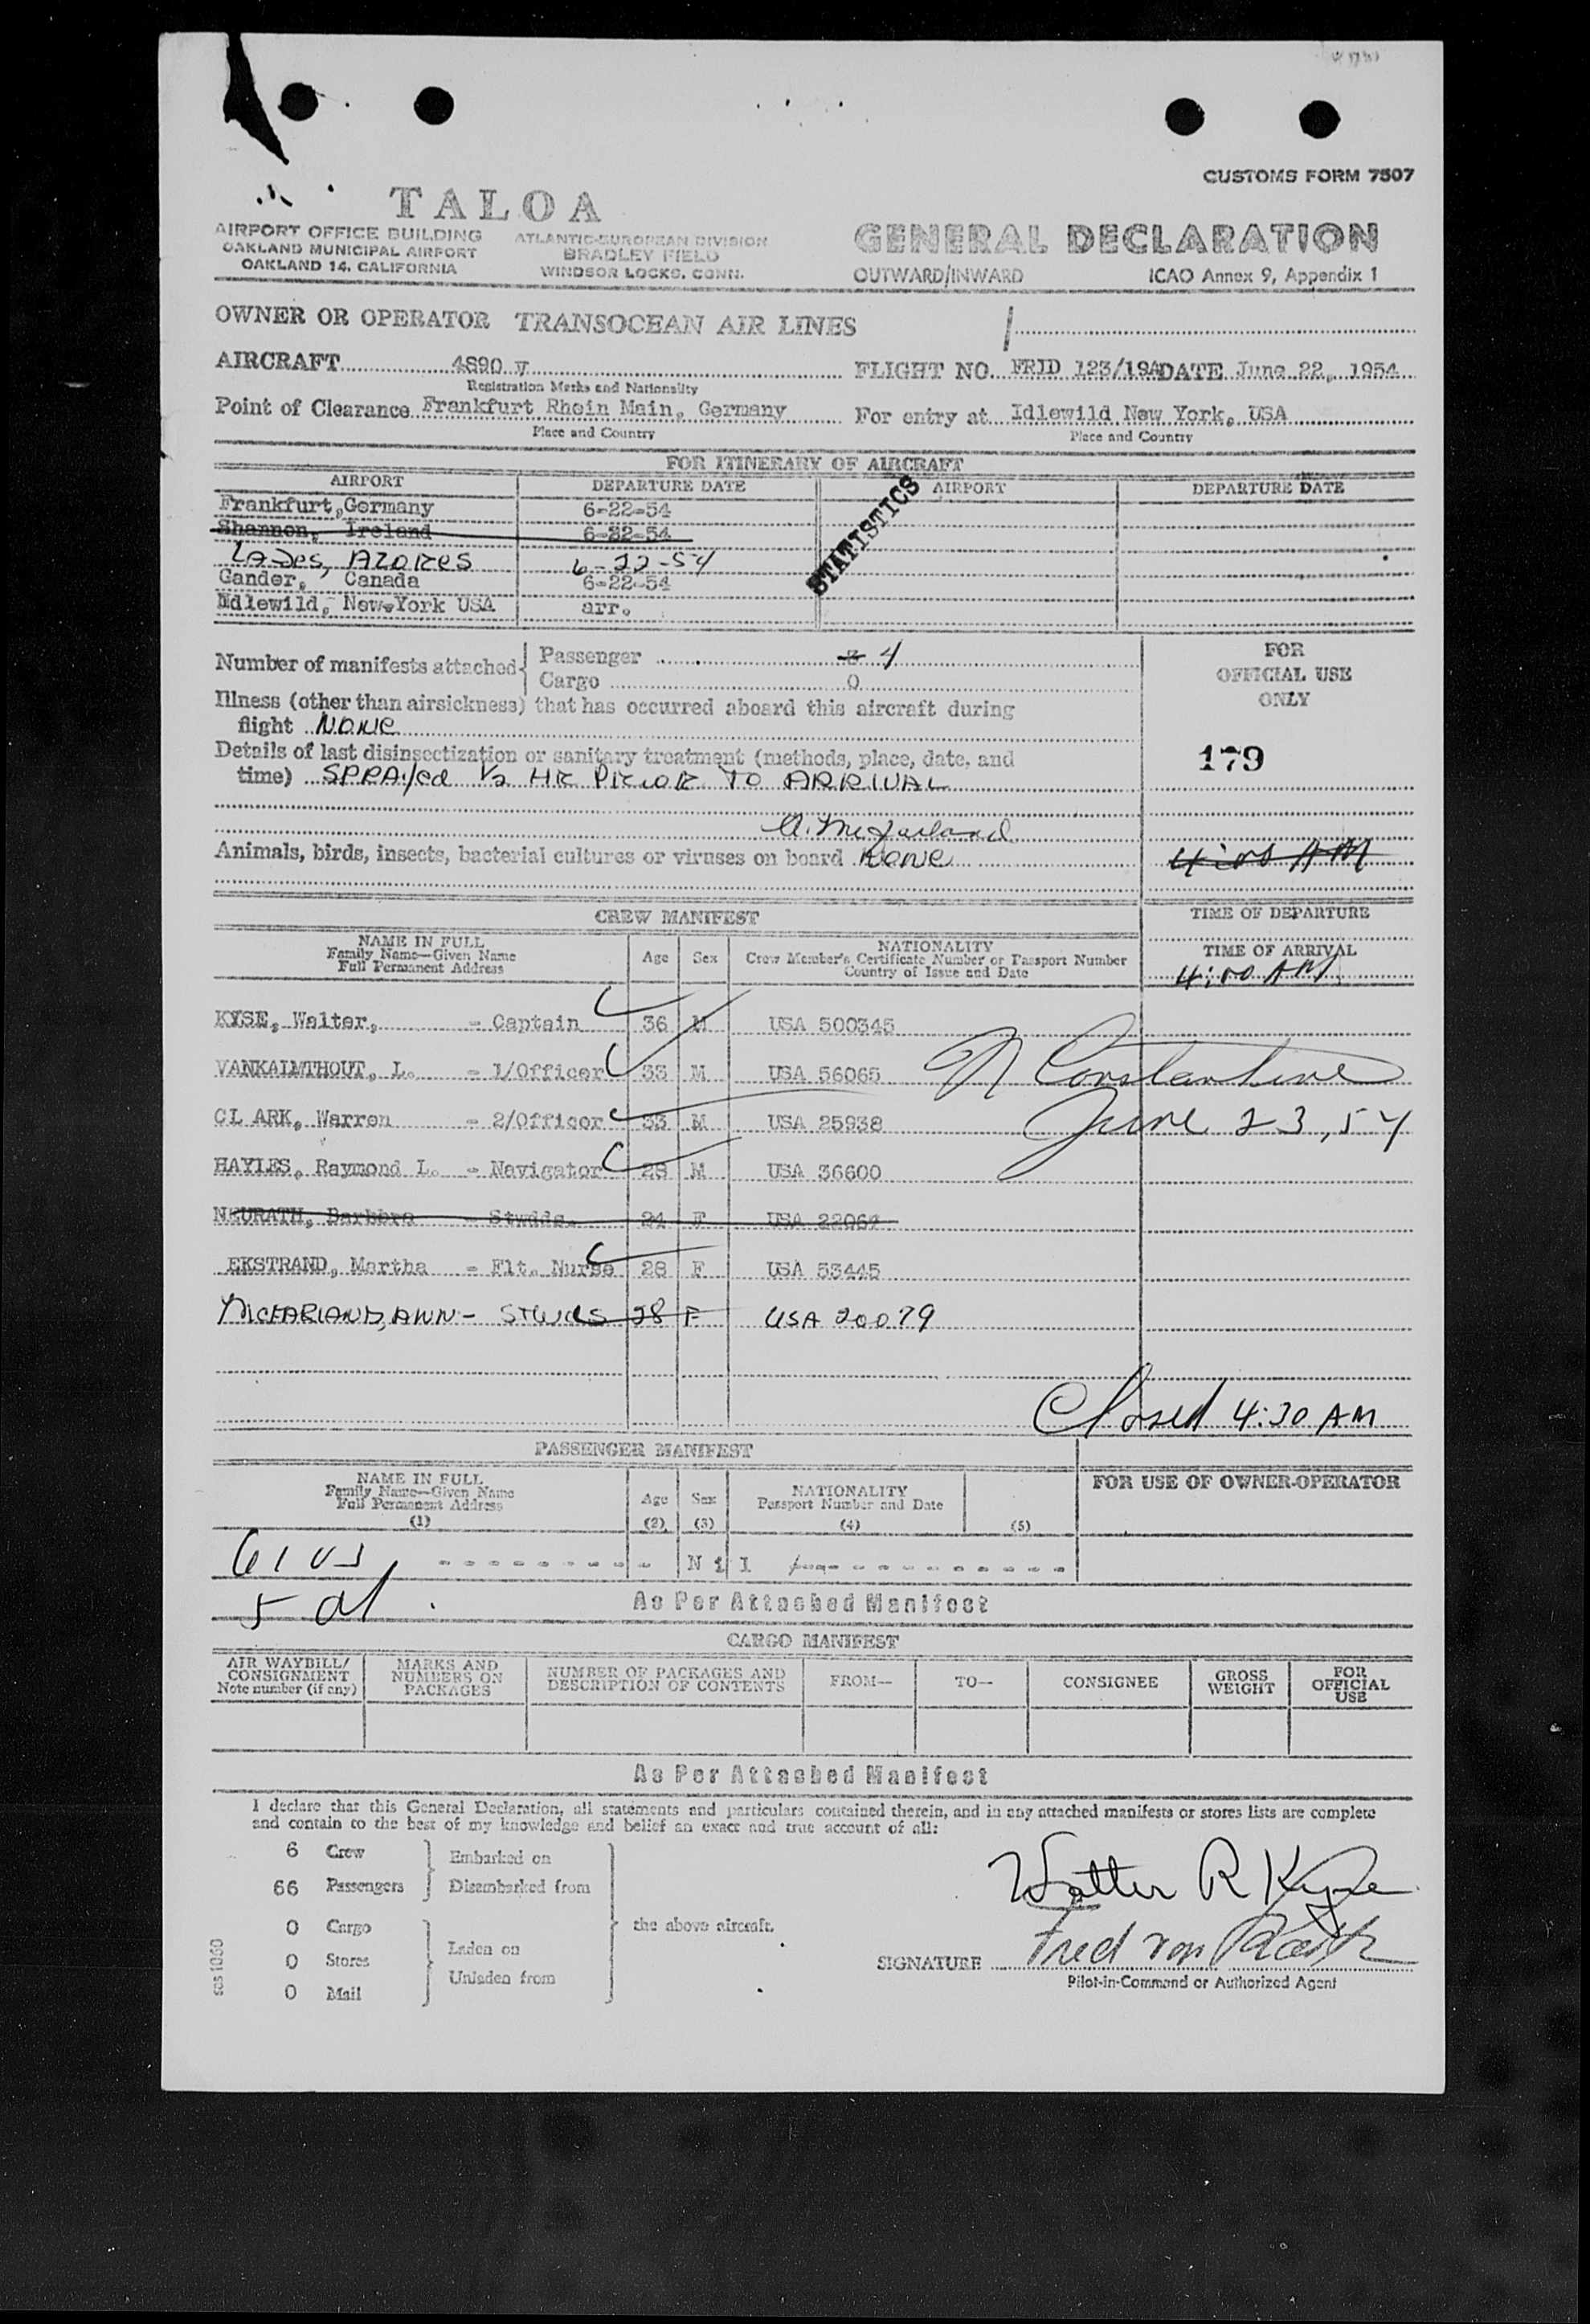 CUSTOMS FORM 7507
TALOA
AIRPORT OFFICE BUILDING
OAKLAND MUNICIPAL AIRPORT
OAKLAND 14, CALIFORNIA
ATLANTIC-EUROPEAN DIVISION
BRADLEY FIELD
WINDSOR LOCKS, CONN.
GENERAL DECLARATION
OUTWARD/INWARD ICAO Annex 9, Appendix 1
OWNER OR OPERATOR TRANSOCEAN AIR LINES
AIRCRAFT 4890 v FLIGHT NO. FRID 123/19A DATE June 22, 1954
Registration Marks and Nationality
Point of Clearance Frankfurt Rhein Main, Germany For entry at Idlewild New York, USA
Place and Country Place and Country
FOR ITINERARY OF AIRCRAFT
AIRPORT DEPARTURE DATE AIRPORT DEPARTURE DATE
STATISTICS
Frankfurt, Germany 6-22-54
Shannon, Ireland 6-22-54
LAJes, AZORES 6-22-54
Gander, Canada 6-22-54
Idlewild, New York USA arr.
Number of manifests attached Passenger 3 4
Cargo 0
FOR
OFFICIAL USE
ONLY
Illness (other than airsickness) that has occurred aboard this aircraft during
flight NONe
Details of last disinsectization or sanitary treatment (methods, place, date, and
time) SPRAyed 1/2 HR PRIOR TO ARRIVAL
179
A. McFarland
Animals, birds, insects, bacterial cultures or viruses on board NONe
4:00 AM
CREW MANIFEST
TIME OF DEPARTURE
NAME IN FULL
Family Name—Given Name
Full Permanent Address
Age Sex
NATIONALITY
Crew Member's Certificate Number or Passport Number
Country of Issue and Date
TIME OF ARRIVAL
4:00 AM
KYSE, Walter, - Captain 36 M USA 500345
VANKALMTHOUT, L. - 1/Officer 33 M USA 56065
N Constantine
CLARK, Warren - 2/Officer 33 M USA 25938
June 23, 54
HAYLES, Raymond L. - Navigator 28 M USA 36600
NEURATH, Barbara - Stwdds. 24 F USA 22067
EKSTRAND, Martha - Flt. Nurse 28 F USA 53445
McFARLAND, ANN - STWDS 28 F USA 20079
Closed 4:30 AM
PASSENGER MANIFEST
NAME IN FULL
Family Name—Given Name
Full Permanent Address
(1)
Age
(2)
Sex
(3)
NATIONALITY
Passport Number and Date
(4)
(5)
FOR USE OF OWNER-OPERATOR
61 US - - - - - - - - - N i l - - - - - - - - - - -
5 al
As Per Attached Manifest
CARGO MANIFEST
AIR WAYBILL/
CONSIGNMENT
Note number (if any)
MARKS AND
NUMBERS ON
PACKAGES
NUMBER OF PACKAGES AND
DESCRIPTION OF CONTENTS
FROM—
TO—
CONSIGNEE
GROSS
WEIGHT
FOR
OFFICIAL
USE
As Per Attached Manifest
I declare that this General Declaration, all statements and particulars contained therein, and in any attached manifests or stores lists are complete
and contain to the best of my knowledge and belief an exact and true account of all:
6 Crew
66 Passengers
Embarked on
Disembarked from
0 Cargo
0 Stores
0 Mail
Laden on
Unladen from
the above aircraft.
Walter R Kyse
SIGNATURE Fred von
Pilot-in-Command or Authorized Agent